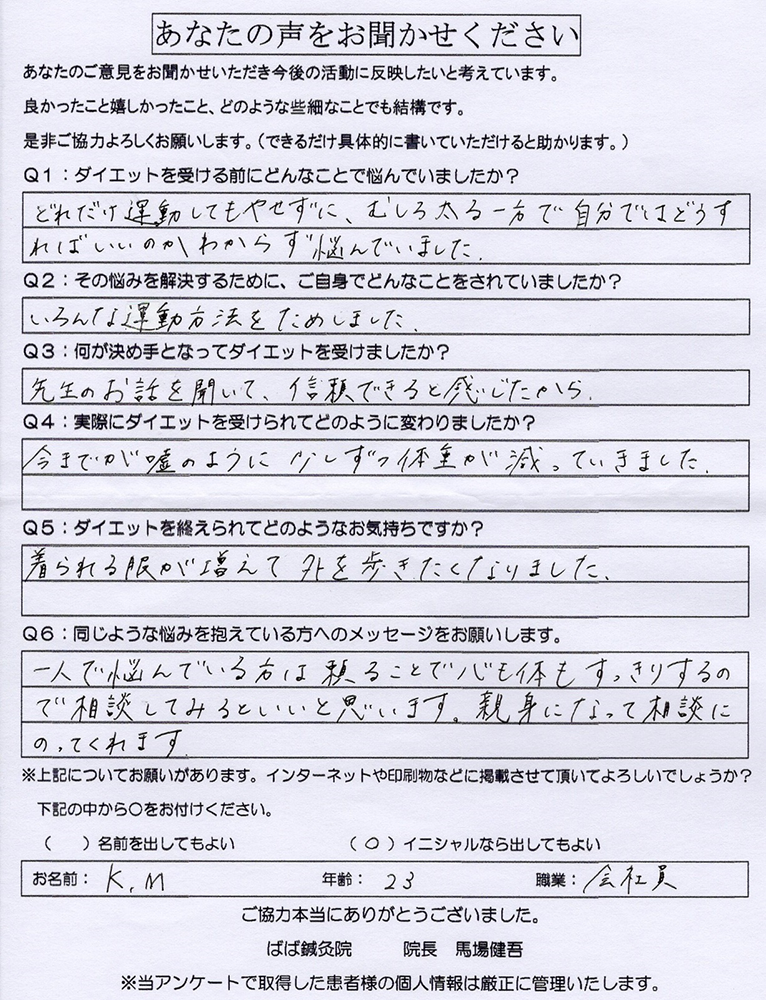 あなたの声をお聞かせください
あなたのご意見をお聞かせいただき今後の活動に反映したいと考えています。
良かったこと嬉しかったこと、どのような些細なことでも結構です。
是非ご協力よろしくお願いします。(できるだけ具体的に書いていただけると助かります。)
Q1:ダイエットを受ける前にどんなことで悩んでいましたか?
どれだけ運動してもやせずに、むしろ太る一方で自分ではどうす
ればいいのかわからず悩んでいました.
Q2:その悩みを解決するために、ご自身でどんなことをされていましたか?
いろんな運動方法をためしました.
Q3:何が決め手となってダイエットを受けましたか?
先生のお話を聞いて、信頼できると感じたから.
Q4:実際にダイエットを受けられてどのように変わりましたか?
今までが嘘のように少しずつ体重が減っていきました.
Q5:ダイエットを終えられてどのようなお気持ちですか?
着られる服が増えて外を歩きたくなりました.
Q6:同じような悩みを抱えている方へのメッセージをお願いします。
一人で悩んでいる方は頼ることで心も体もすっきりするの
で相談してみるといいと思います。親身になって相談に
のってくれます.
※上記についてお願いがあります。インターネットや印刷物などに掲載させて頂いてよろしいでしょうか?
下記の中から○をお付けください。
( )名前を出してもよい (○)イニシャルなら出してもよい
お名前: K.M 年齢: 23 職業: 会社員
ご協力本当にありがとうございました。
ばば鍼灸院 院長 馬場健吾
※当アンケートで取得した患者様の個人情報は厳正に管理いたします。